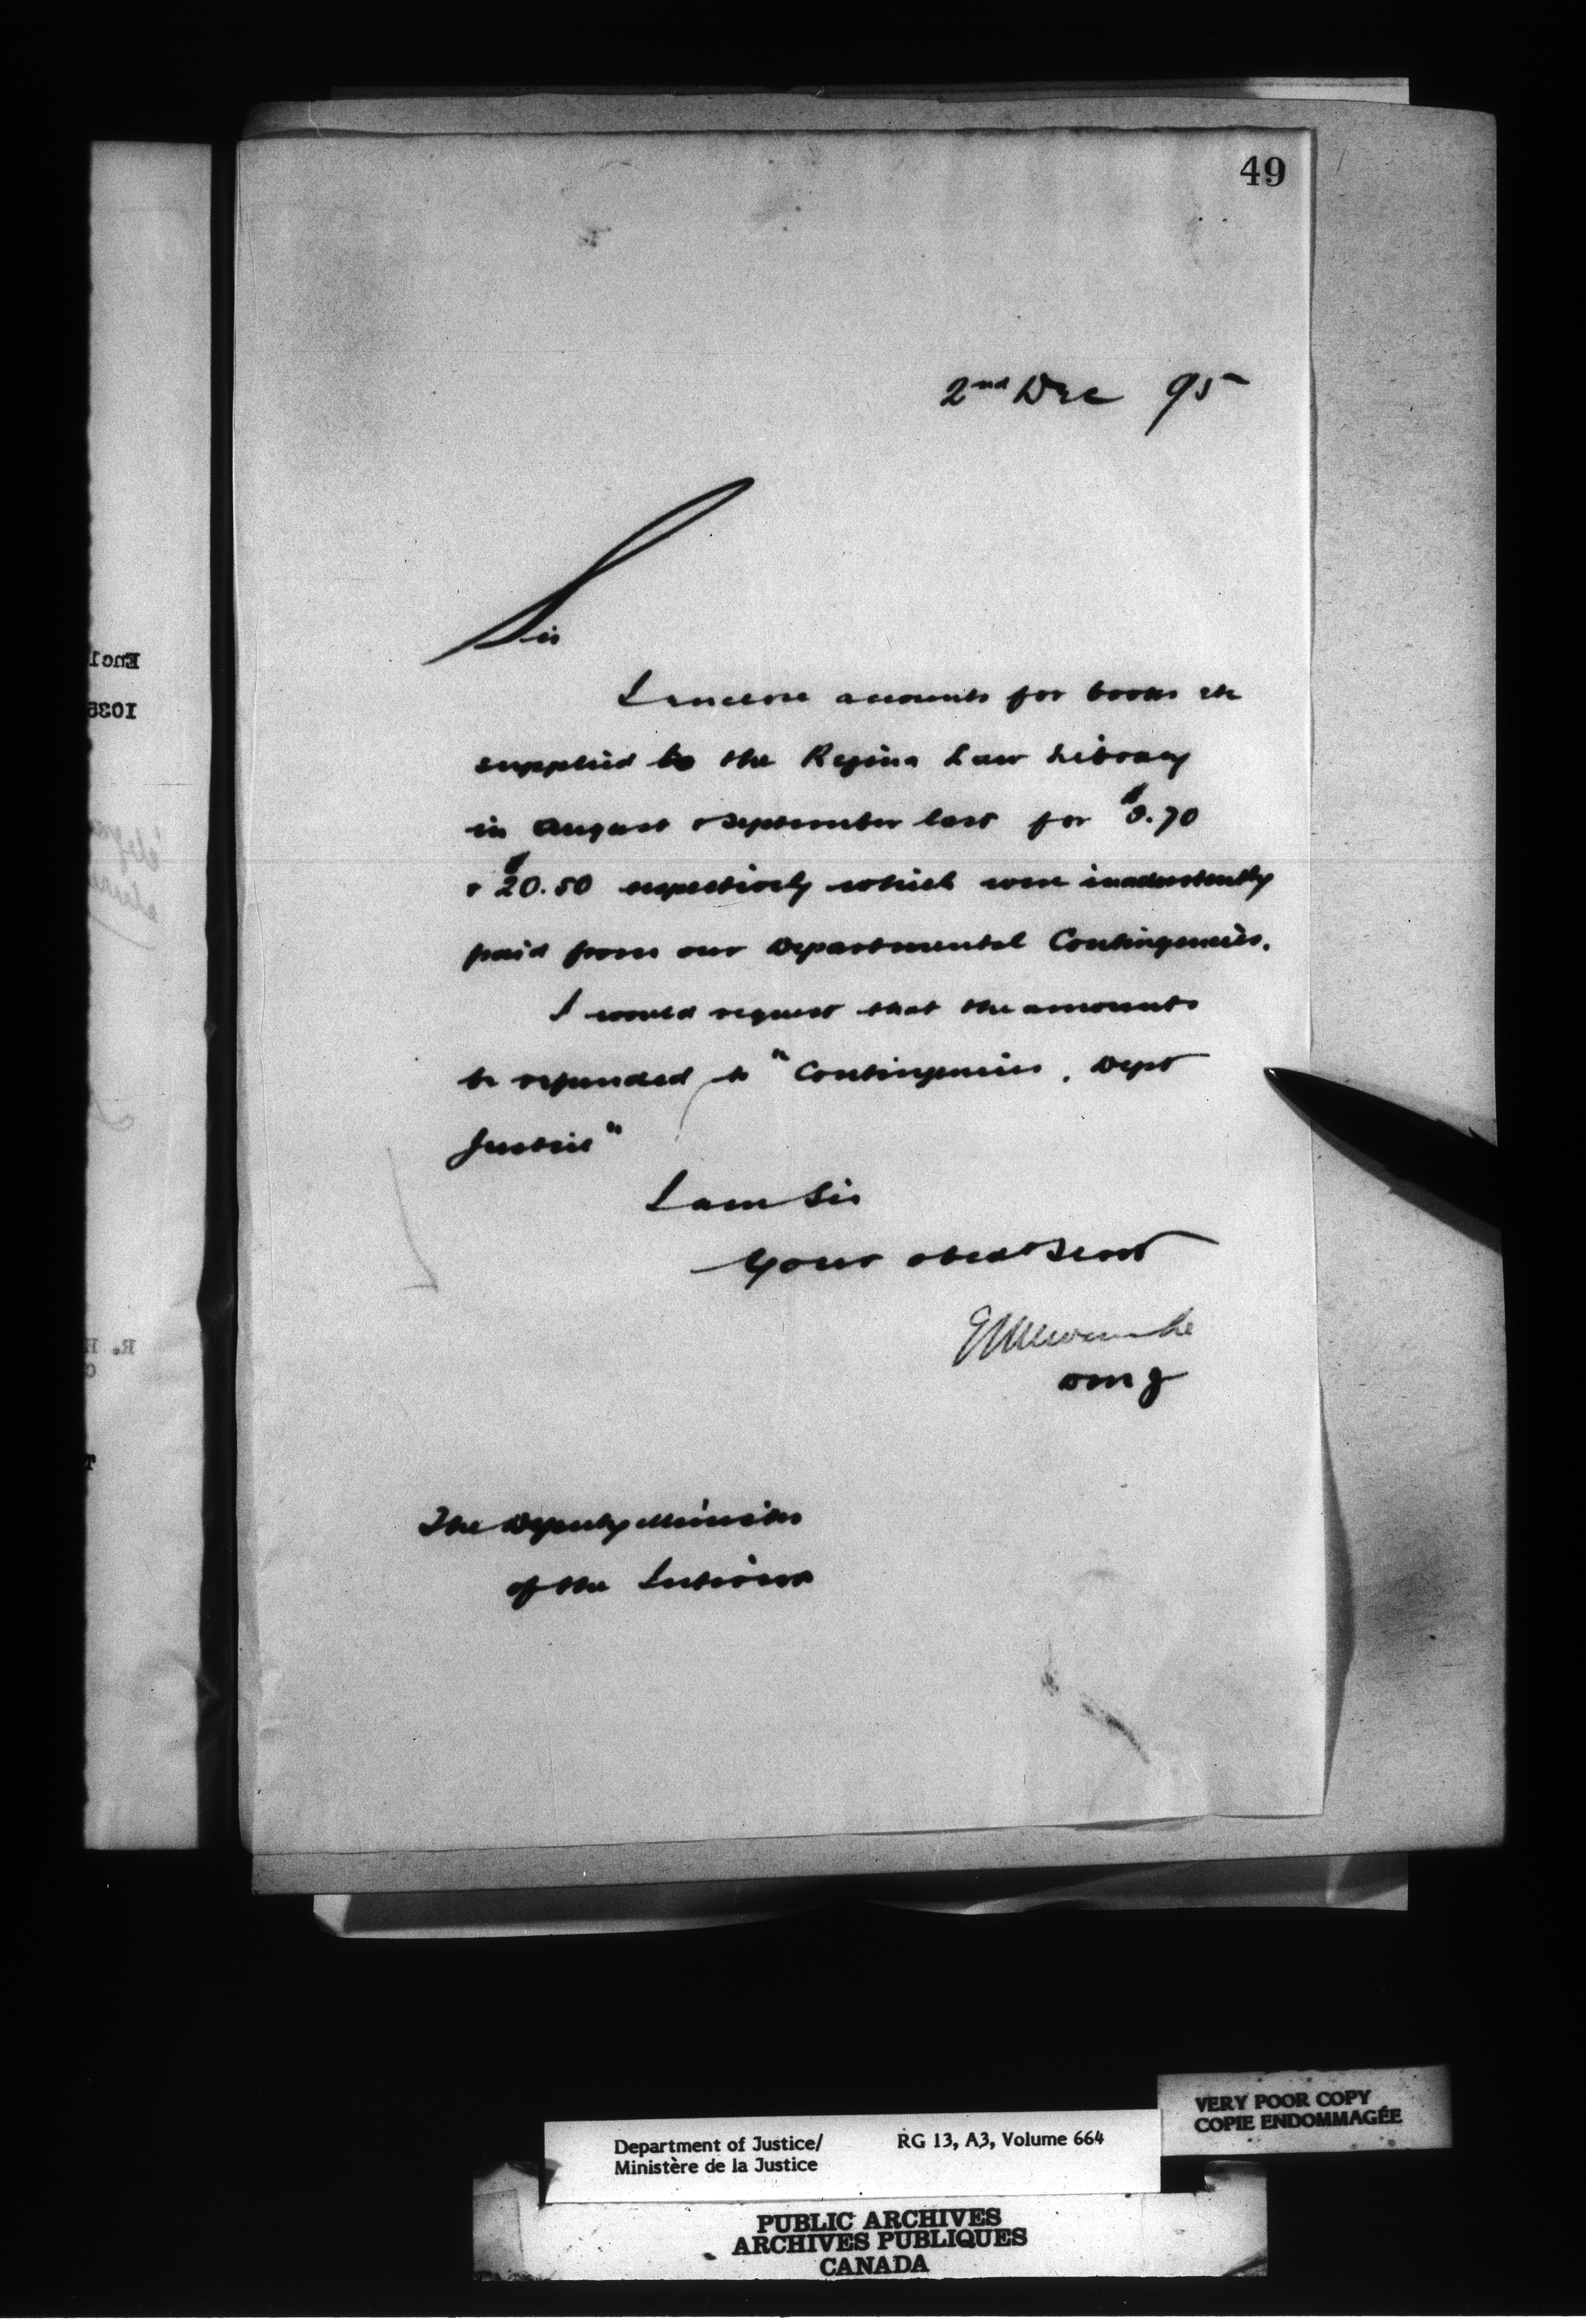 49
2nd Dec 95
Sir
I enclose accounts for books etc
supplied to the Regina Law Library
in August & September last for $8.70
& $20.50 respectively which were inadvertently
paid from our Departmental Contingencies.
I would request that the amounts
be refunded to "Contingencies, Dept
Justice"
I am Sir
Your obedt Servt
E L Newcombe
D M J
The Deputy Minister
of the Interior
Encl
1035
R. H
C
T
VERY POOR COPY
COPIE ENDOMMAGÉE
Department of Justice/ RG 13, A3, Volume 664
Ministère de la Justice
PUBLIC ARCHIVES
ARCHIVES PUBLIQUES
CANADA